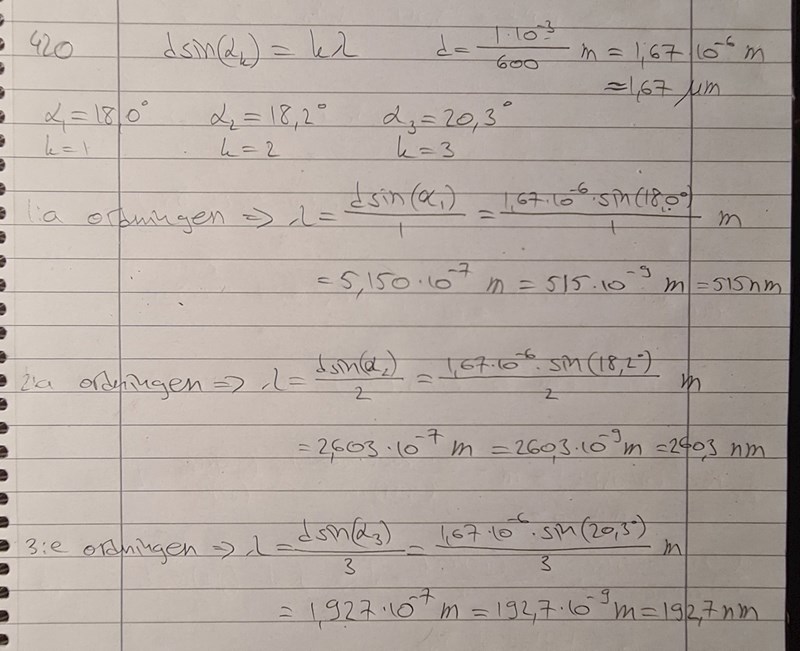 420 dsin(α_k) = kλ d = 1·10⁻³/600 m = 1,67 10⁻⁶ m
= 1,67 μm
α₁ = 18,0° α₂ = 18,2° α₃ = 20,3°
k = 1 k = 2 k = 3
1:a ordningen => λ = dsin(α₁)/1 = 1,67·10⁻⁶·sin(18,0°)/1 m
= 5,150·10⁻⁷ m = 515·10⁻⁹ m = 515 nm
2:a ordningen => λ = dsin(α₂)/2 = 1,67·10⁻⁶·sin(18,2°)/2 m
= 2,603·10⁻⁷ m = 260,3·10⁻⁹ m = 260,3 nm
3:e ordningen => λ = dsin(α₃)/3 = 1,67·10⁻⁶·sin(20,3°)/3 m
= 1,927·10⁻⁷ m = 192,7·10⁻⁹ m = 192,7 nm